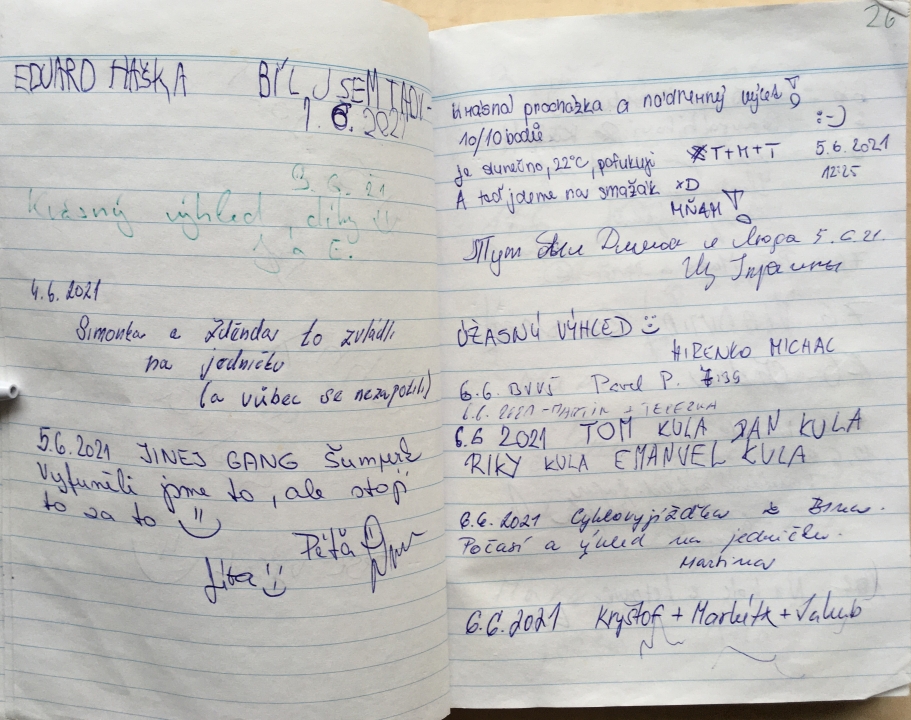 EDUARD HAŠKA BÍL JSEM TADI-
1.6.2021
3.6.21
Krásný výhled, díky
J a E.
4.6.2021
Simonka a Zdenda to zvládli
na jedničku
(a vůbec se nezapotili)
5.6.2021 JINEJ GANG Šumperk
Vyfuněli jsme to, ale stojí
to za to
Péťa
Jitka
26
Krásná procházka a nádherný výhled!
10/10 bodů :-)
Je slunečno, 22°C, pofukuje T+M+T 5.6.2021
A teď jdeme na smažák xD 12:25
MŇAM!
Тут были и Люда 5.6.21.
Из Украины
ÚŽASNÝ VÝHLED
HIRENKO MICHAL
6.6. Pavel P.
6.6.2021 - MARTIN + TEREZKA
6.6 2021 TOM KULA JAN KULA
RIKY KULA EMANUEL KULA
6.6.2021 Cyklovyjížďka z Brna.
Počasí a výhled na jedničku.
Martina
6.6.2021 Kryštof + Markéta + Jakub